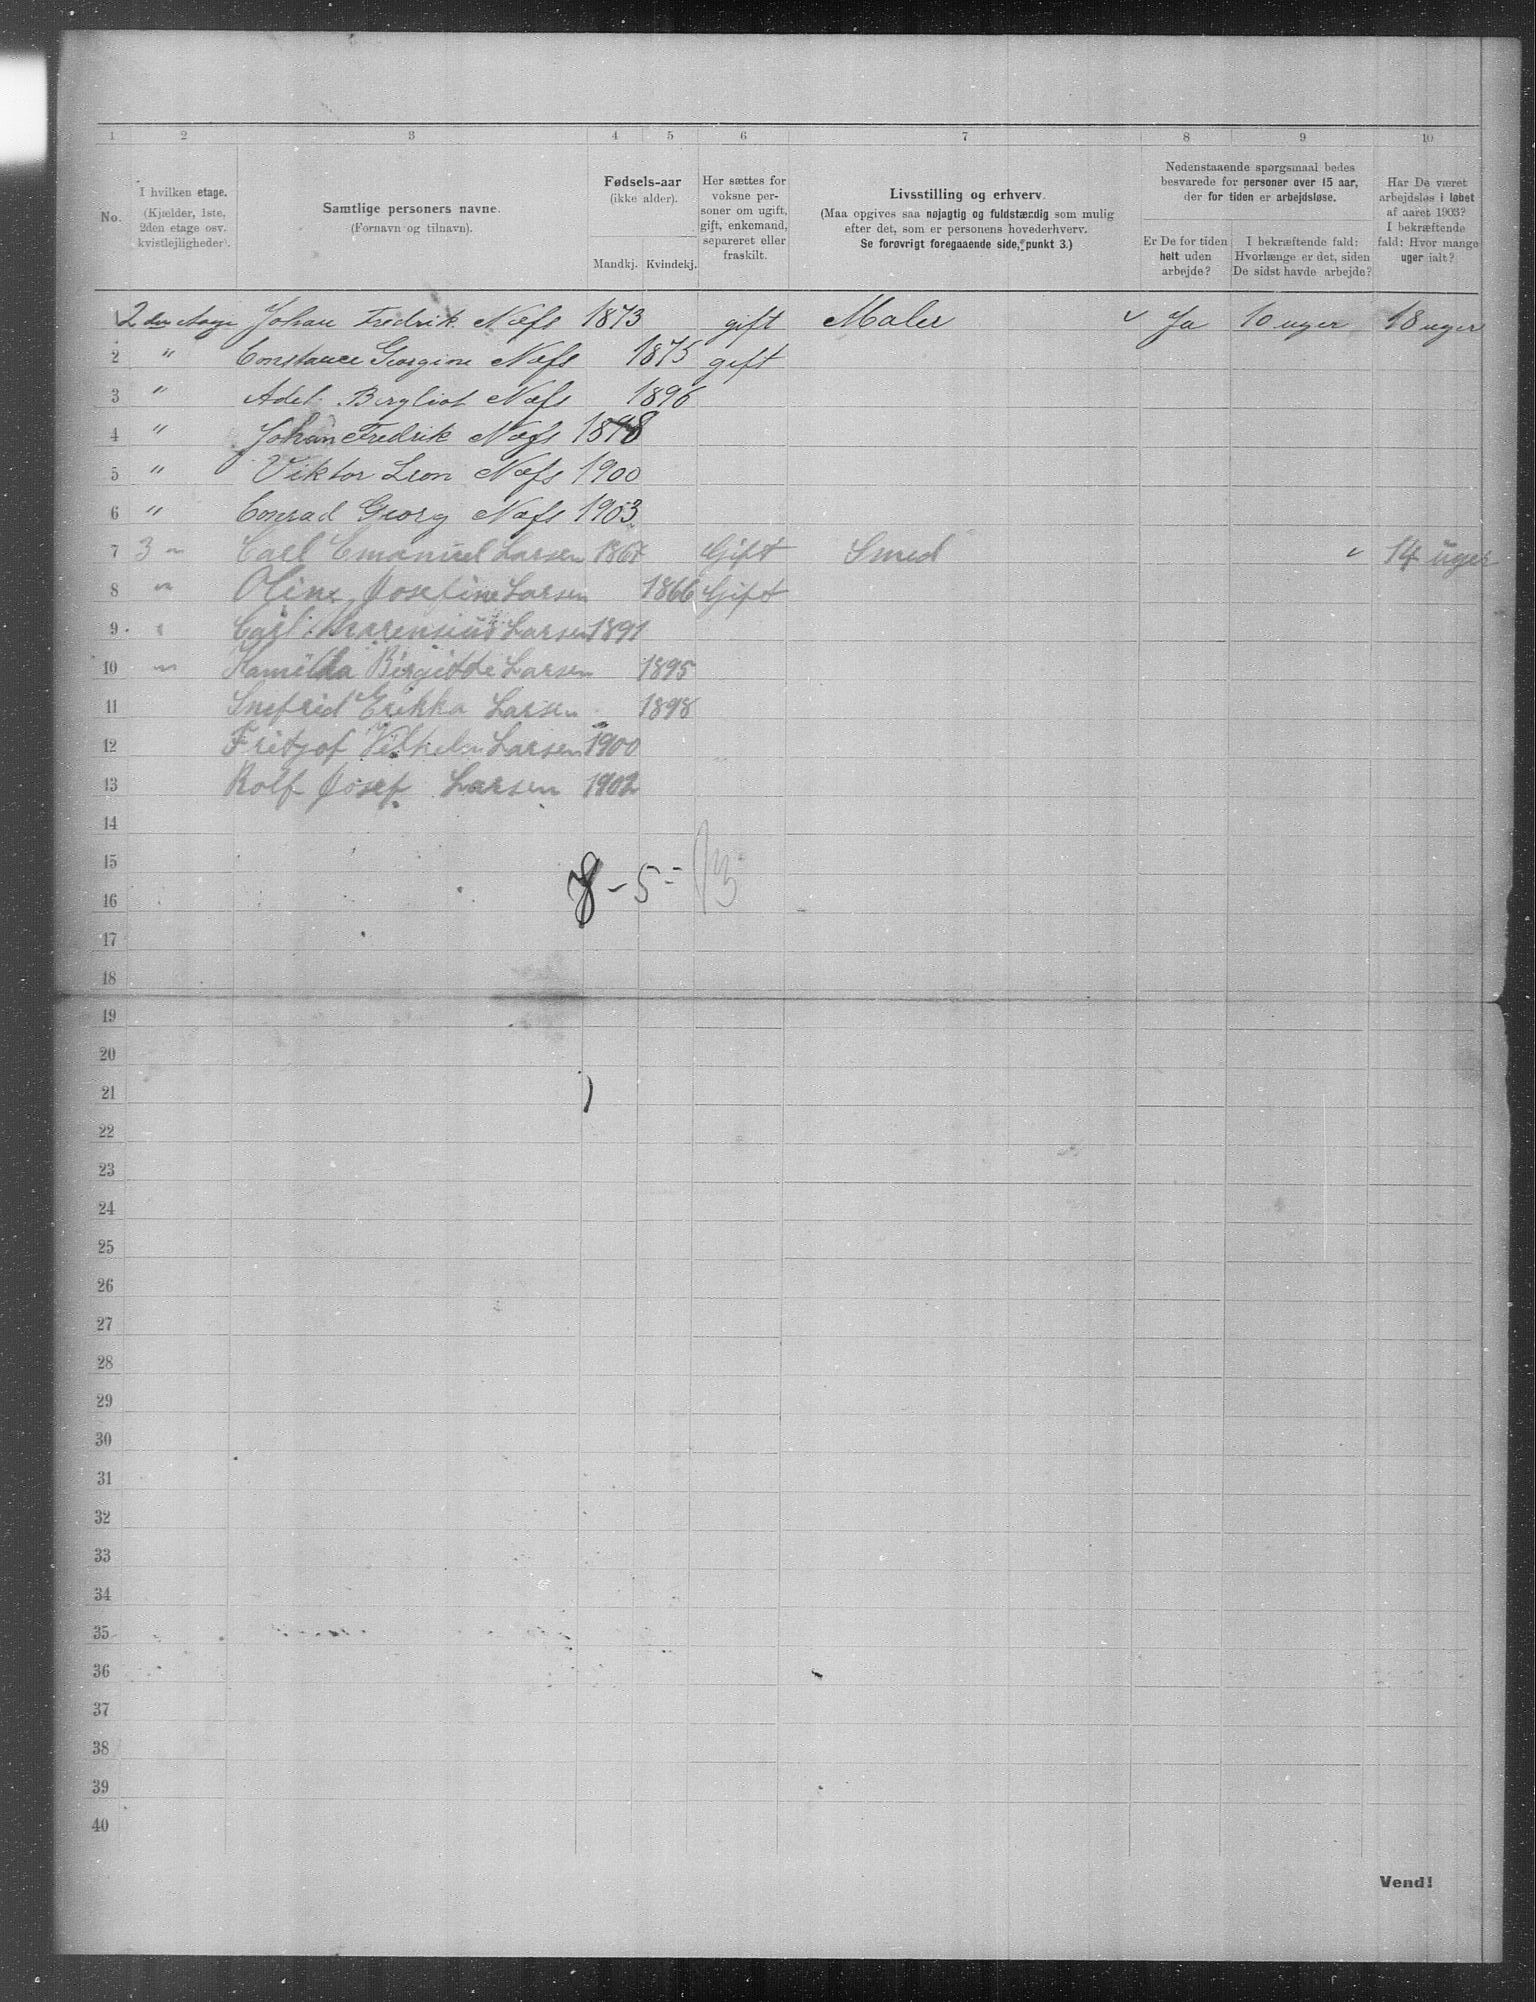 1 2 3 4 5 6 7 8 9 10
No.
I hvilken etage.
(Kjælder, 1ste,
2den etage osv.
kvistlejligheder).
Samtlige personers navne.
(Fornavn og tilnavn).
Fødsels-aar
(ikke alder).
Mandkj. Kvindekj.
Her sættes for
voksne per-
soner om ugift,
gift, enkemand,
separeret eller
fraskilt.
Livsstilling og erhverv.
(Maa opgives saa nøjagtig og fuldstændig som mulig
efter det, som er personens hovederhverv.
Se forøvrigt foregaaende side, punkt 3.)
Nedenstaaende spørgsmaal bedes
besvarede for personer over 15 aar,
der for tiden er arbejdsløse.
Er De for tiden
helt uden
arbejde?
I bekræftende fald:
Hvorlænge er det, siden
De sidst havde arbejde?
Har De været
arbejdsløs i løbet
af aaret 1903?
I bekræftende
fald: Hvor mange
uger ialt?
2 den etage Johan Fredrik Næfs 1873 gift Maler Ja 10 uger 18 uger
2 " Constance Georgine Næfs 1875 gift
3 " Adel. Bergliot Næfs 1896
4 " Johan Fredrik Næfs 1898
5 " Viktor Leon Næfs 1900
6 " Conrad Georg Næfs 1903
7 3 " Carl Emanuel Larsen 1867 Gift Smed 14 uger
8 " Oline Josefine Larsen 1866 Gift
9 Carl Marensius Larsen 1891
10 " Kamilda Birgitte Larsen 1895
11 Snefrid Erikka Larsen 1898
12 Fritjof Vilhelm Larsen 1900
13 Rolf Josef Larsen 1902
14
15
8 - 5 = 13
16
17
18
19
20
21
22
23
24
25
26
27
28
29
30
31
32
33
34
35
36
37
38
39
40
Vend!